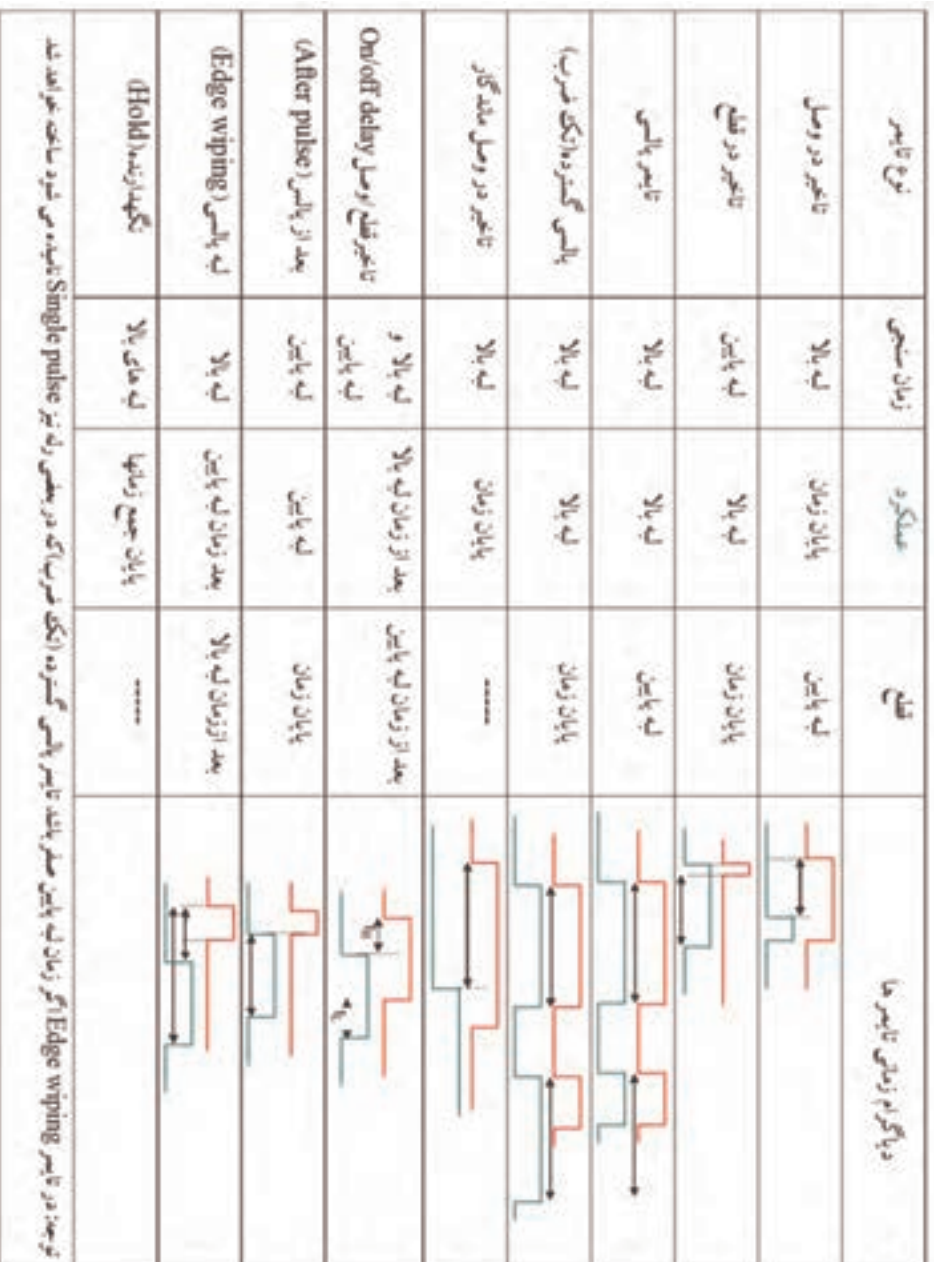 نوع تایمر	زمان سنجی	عملکرد	قطع	دیاگرام زمانی تایمر ها
تاخیر در وصل	لبه بالا	پایان زمان	لبه پایین
تاخیر در قطع	لبه پایین	لبه بالا	پایان زمان
تایمر پالسی	لبه بالا	لبه بالا	لبه پایین
پالسی گسترده(تک ضرب)	لبه بالا	لبه بالا	پایان زمان
تاخیر در وصل ماندگار	لبه بالا	پایان زمان	-----
تاخیر قطع / وصل	لبه بالا و	بعد از زمان لبه بالا	بعد از زمان لبه پایین
On/off delay	لبه پایین
بعد از پالس	لبه پایین	لبه پایین	پایان زمان
(After pulse)
لبه پالسی	لبه بالا	بعد زمان لبه پایین	بعد از زمان لبه بالا
(Edge wiping)
نگهدارنده(Hold)	لبه های بالا	پایان جمع زمانها	-----
توجه: در تایمر Edge wiping اگر زمان لبه پایین صفر باشد تایمر پالسی گسترده (تک ضرب)که در بعضی رله نیز Single pulse نامیده می شود ساخت خواهد شد